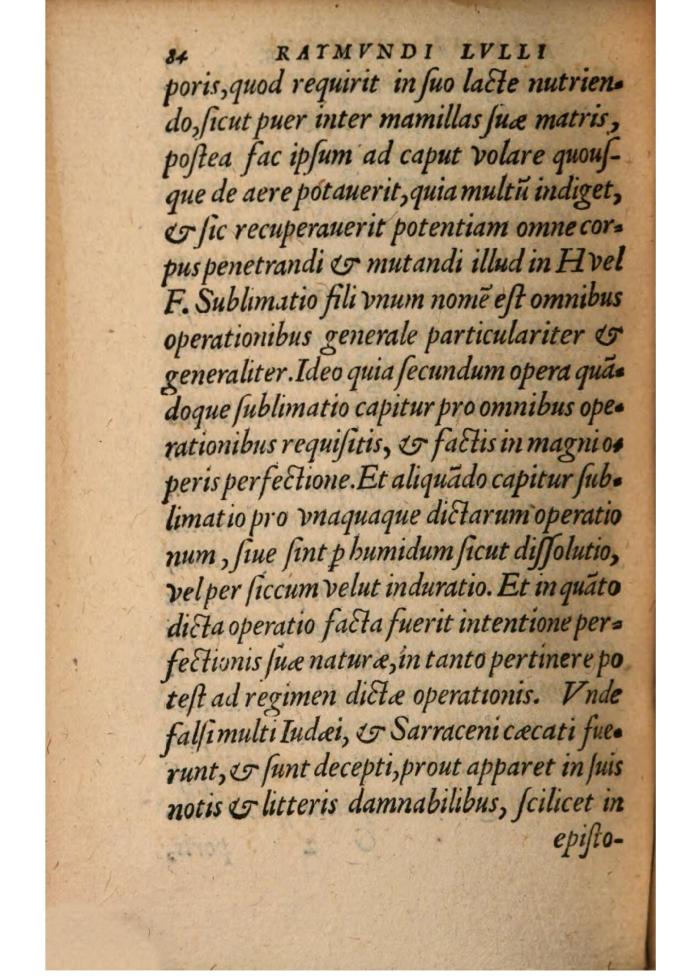 84 RAYMVNDI LVLLI
poris, quod requirit in ſuo lacte nutrien-
do, ſicut puer inter mamillas ſuæ matris,
poſtea fac ipſum ad caput volare quouſ-
que de aere potauerit, quia multũ indiget,
& ſic recuperauerit potentiam omne cor-
pus penetrandi & mutandi illud in H vel
F. Sublimatio fili vnum nomẽ eſt omnibus
operationibus generale particulariter &
generaliter. Ideo quia ſecundum opera quã-
doque ſublimatio capitur pro omnibus ope-
rationibus requiſitis, & factis in magni o-
peris perfectione. Et aliquãdo capitur ſub-
limatio pro vnaquaque dictarum operatio
num, ſiue ſint ꝑ humidum ſicut diſſolutio,
vel per ſiccum velut induratio. Et in quãto
dicta operatio facta fuerit intentione per-
fectionis ſuæ naturæ, in tanto pertinere po
teſt ad regimen dictæ operationis. Vnde
falſi multi Iudæi, & Sarraceni cæcati fue-
runt, & ſunt decepti, prout apparet in ſuis
notis & litteris damnabilibus, ſcilicet in
epiſto-